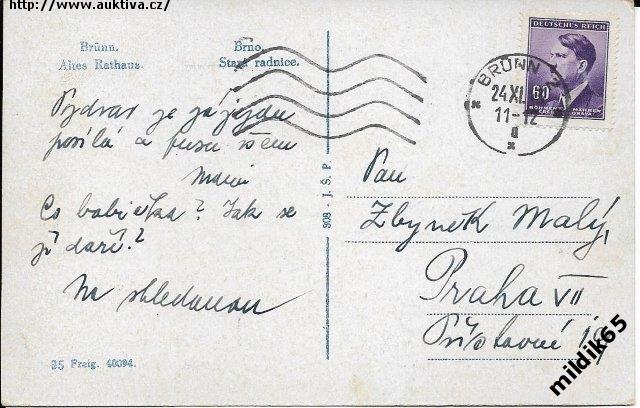 http://www.auktiva.cz/
Brünn.
Altes Rathaus.
Brno.
Stará radnice.
DEUTSCHES REICH
60
BÖHMEN MÄHREN
BRÜNN
24.XI.
11-12
Pozdrav ze zájezdu
posílá a pusu všem
Co babička? Jak se
jí daří?
Na shledanou
908 - J. Š. P.
Pan
Zbyněk Malý,
Praha VII
Přístavní 19
35 Freig. 40094.
mildik65